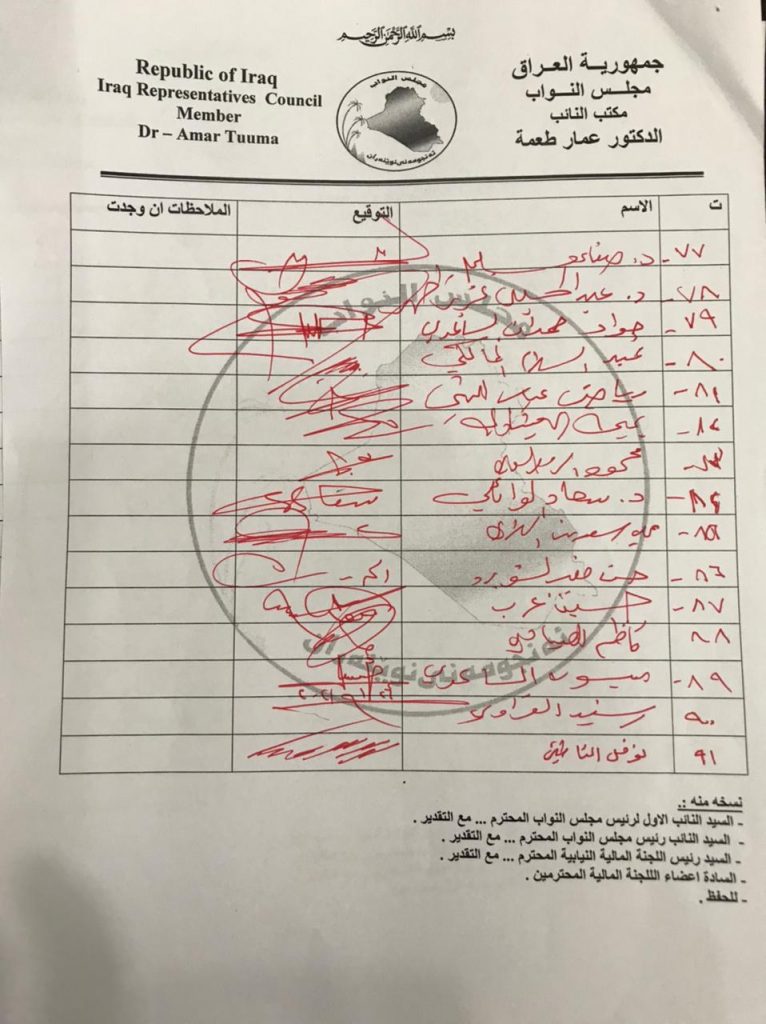 بسم الله الرحمن الرحيم
Republic of Iraq
Iraq Representatives Council
Member
Dr – Amar Tuuma
جمهورية العراق
مجلس النواب
مكتب النائب
الدكتور عمار طعمة
مجلس النواب
ئه نجومه نی نوێنه ران
ت الاسم التوقيع الملاحظات ان وجدت
٧٧- د. صفاء
٧٨- د. عبد الحسين عزيز
٧٩- جواد حمدان الساعدي
٨٠- عبد السلام المالكي
٨١- رياض عباس
٨٢-
٨٣- محمود
٨٤- د. سعاد الوائلي
٨٥-
٨٦- حسن
٨٧- حسين عرب
٨٨ كاظم الصيادي
٨٩- ميسون الساعدي
٩٠ رشيد العزاوي
٩١ نوفل الناشئ
نسخه منه :.
- السيد النائب الاول لرئيس مجلس النواب المحترم ... مع التقدير .
- السيد النائب رئيس مجلس النواب المحترم ... مع التقدير .
- السيد رئيس اللجنة المالية النيابية المحترم ... مع التقدير .
- السادة اعضاء الللجنة المالية المحترمين .
- للحفظ .